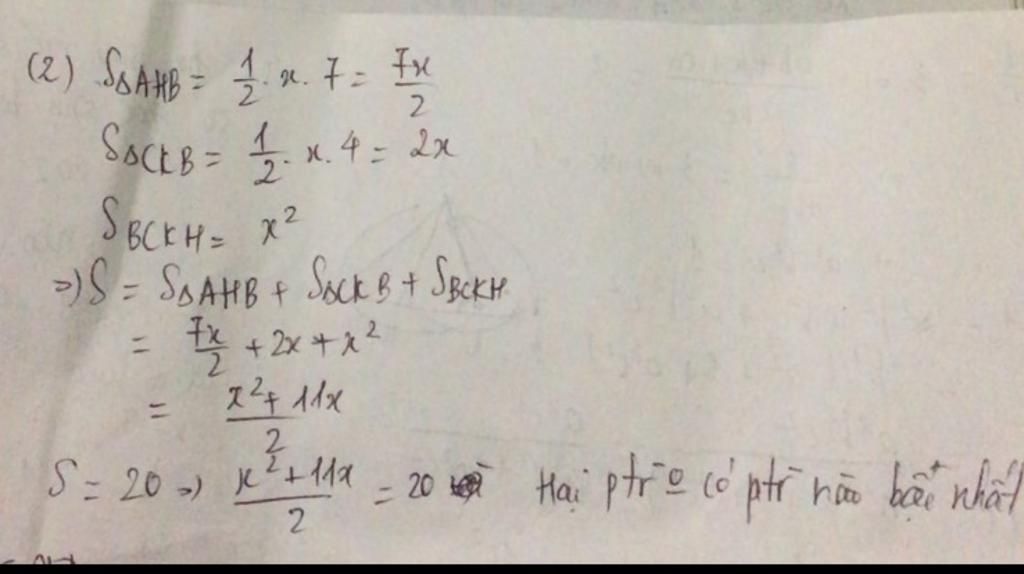 (2) S∆AHB = 1/2 . x . 7 = 7x/2
S∆CKB = 1/2 . x . 4 = 2x
SBCKH = x²
=> S = S∆AHB + S∆CKB + SBCKH
= 7x/2 + 2x + x²
= (x² + 11x)/2
S = 20 => (x² + 11x)/2 = 20 Hai ptr o có ptr nào bậc nhất